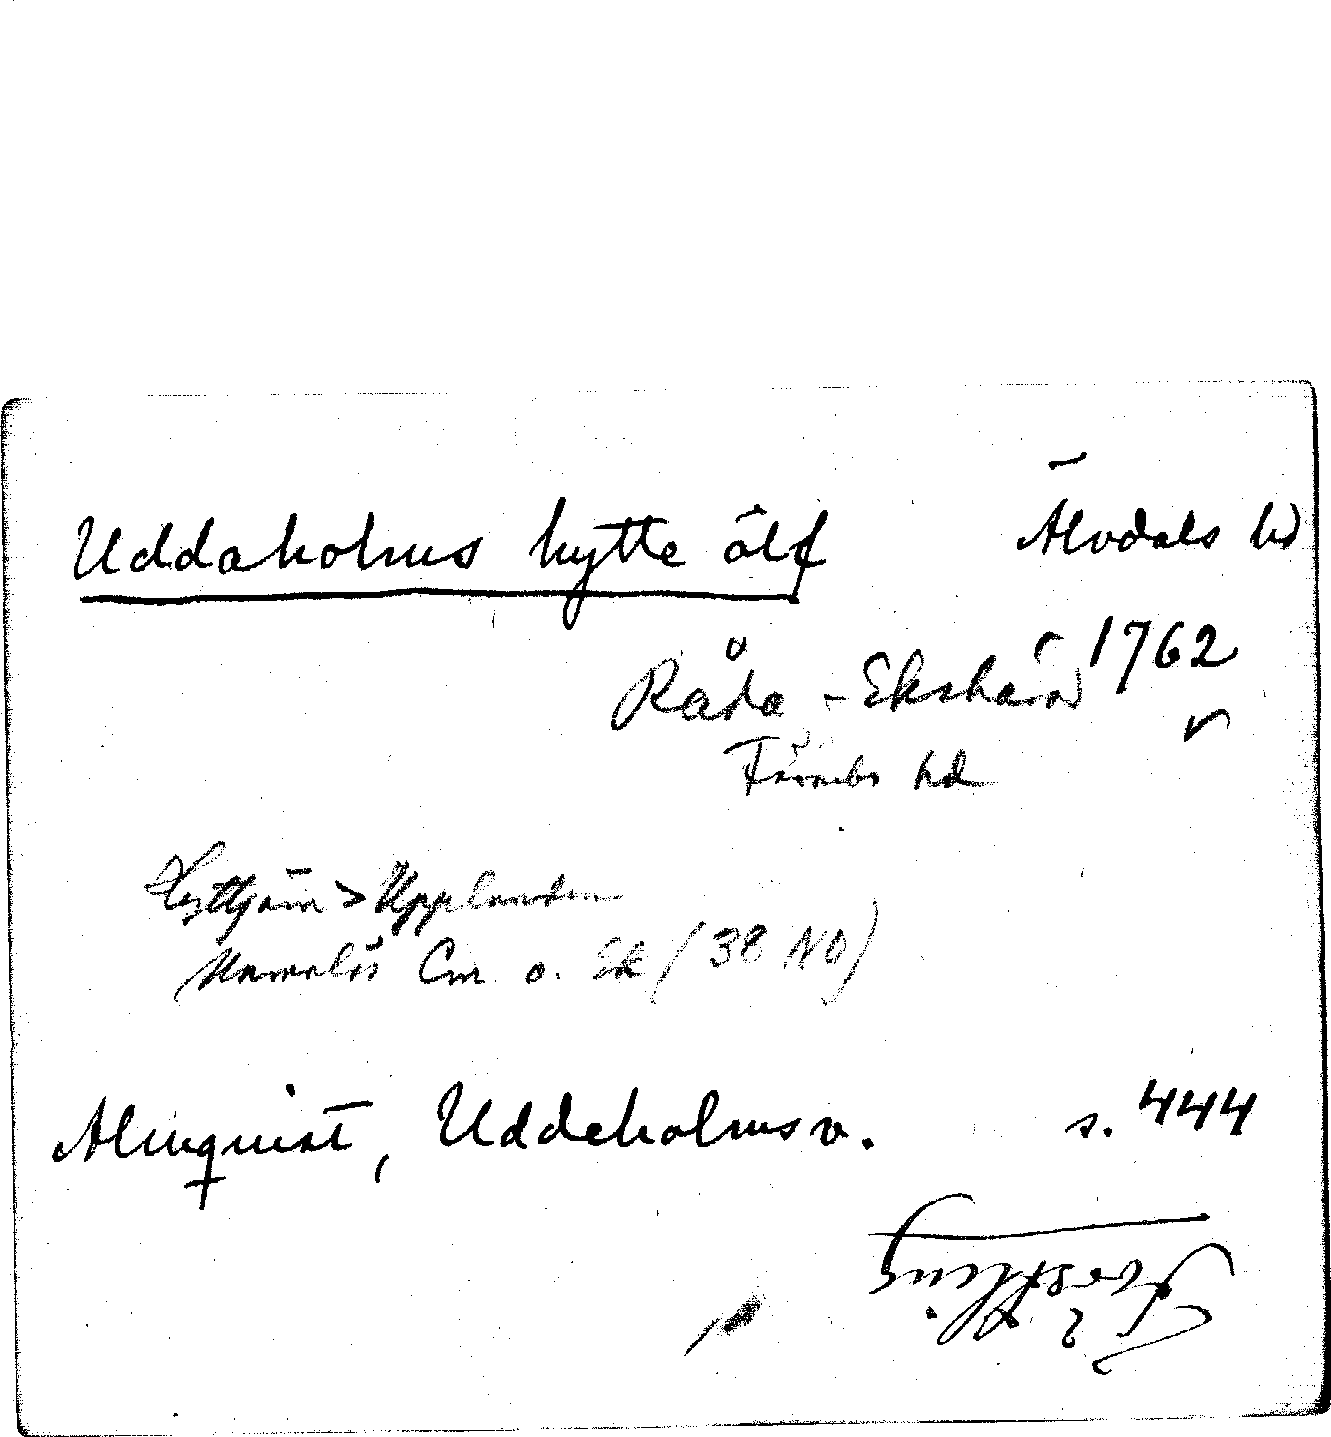 Uddaholms hytte älf Älvdals hd
Råda - Ekshärad 1762
Färnebo hd
Hyttjärn > Upplunden
Cm o. Ek (38 NO)
Almquist, Uddeholmsv. s. 444